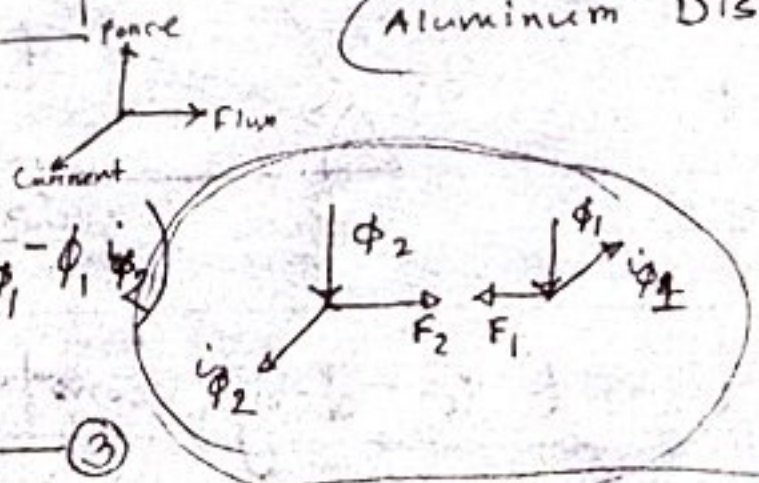 Force
Aluminum Dis
Flux
Current
ϕ₁ - ϕ₁ i
ϕ₂
ϕ₁
F₂ F₁
iϕ₂
iϕ1
③